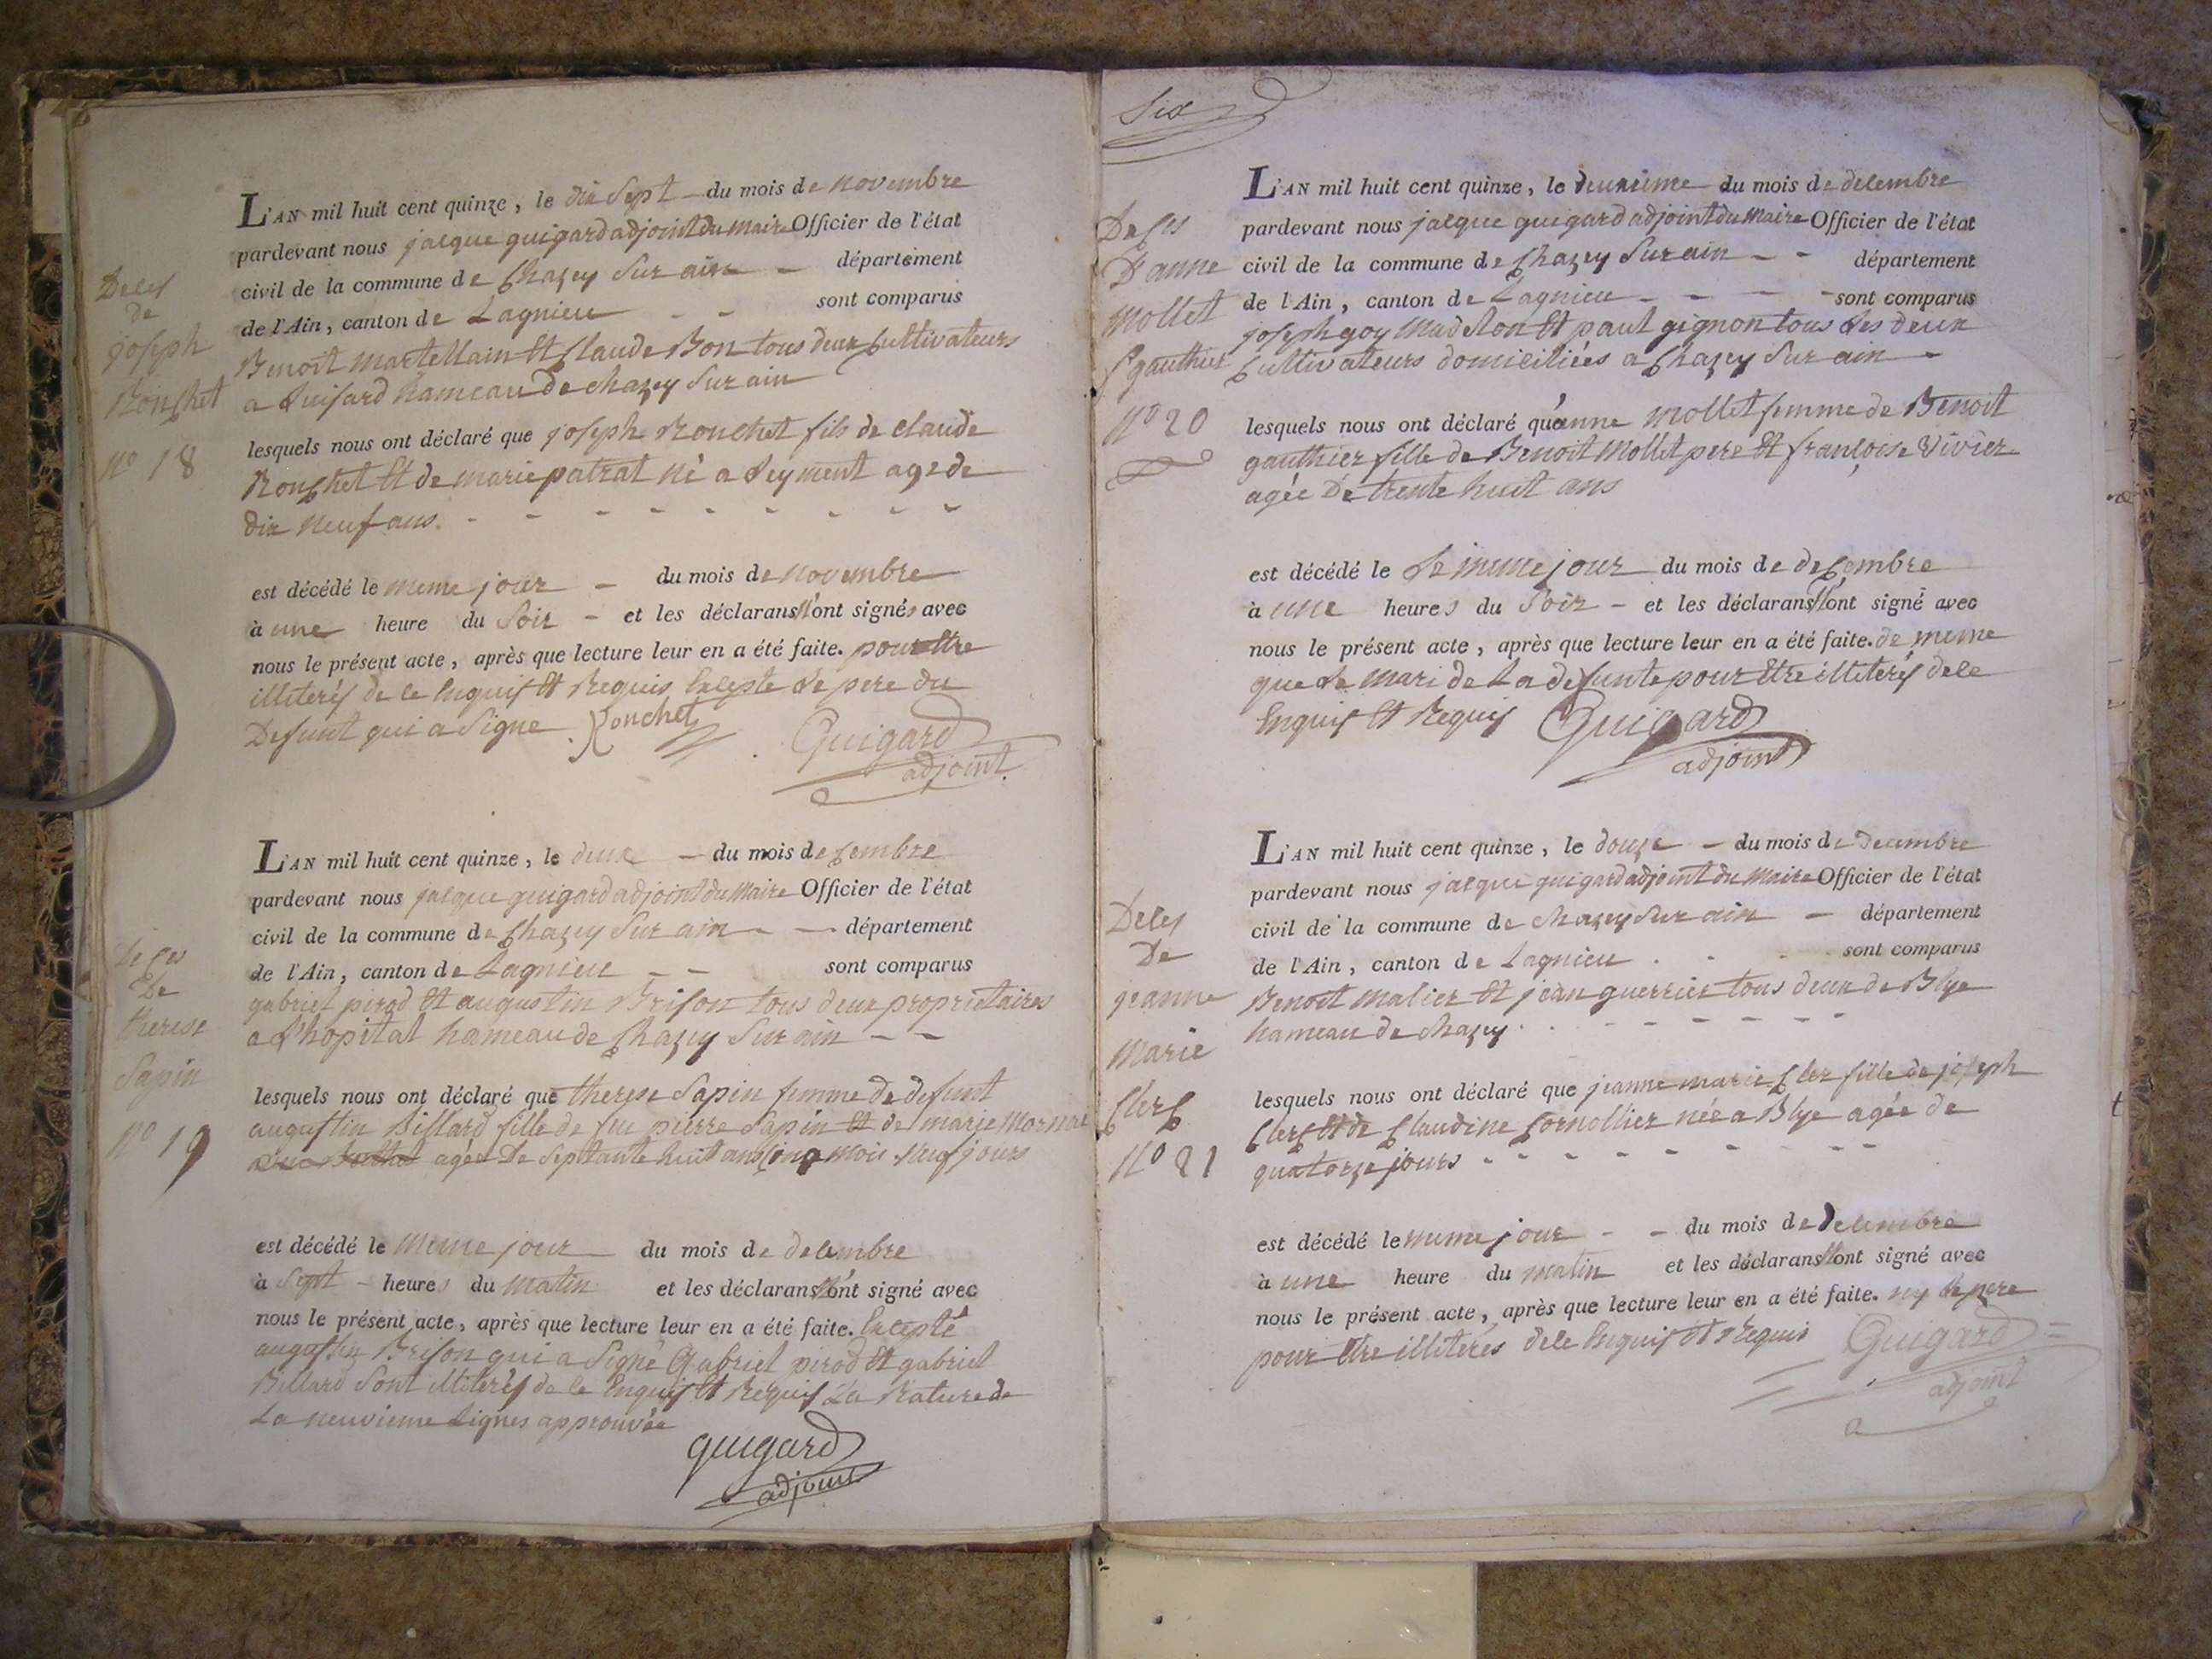 Deces
de
joseph
Ronchet
N° 18
L'AN mil huit cent quinze, le dix sept du mois de novembre
pardevant nous jacque guigard adjoint du Maire Officier de l'état
civil de la commune de Chazey Sur ain département
de l'Ain, canton de Lagnieu - - sont comparus
Benoit Martellain Et Claude Bon tous deux Cultivateurs
a Luisard hameau de chazey Sur ain
lesquels nous ont déclaré que joseph Ronchet fils de claude
Ronchet Et de marie patrat né a Leyment age de
dix neuf ans. - - - - - - - - -
est décédé le meme jour - du mois de novembre
à une heure du Soir - et les déclarans n'ont signés avec
nous le présent acte, après que lecture leur en a été faite. pour Etre
illiterés de le Enquis Et Requis Excepte Le pere du
Defunt qui a Signe . Ronchet Guigard
adjoint.
Deces
De
therese
Sapin
N° 19
L'AN mil huit cent quinze, le deux - du mois decembre
pardevant nous jacque guigard adjoint du Maire Officier de l'état
civil de la commune de Chazey Sur ain - - département
de l'Ain, canton de Lagnieu - - sont comparus
gabriel pirod Et augustin Brison tous deux proprietaires
a L'hopital hameau de Chazey Sur ain - -
lesquels nous ont déclaré que therese Sapin femme de defunt
augustin Billard fille de feu pierre Sapin Et de marie Mornai
agée De Septante huit ans Cinq mois Neuf jours
est décédé le meme jour du mois de decembre
à Sept - heures du Matin et les déclarans n'ont signé avec
nous le présent acte, après que lecture leur en a été faite. Excepté
augustin Brison qui a Signé Gabriel pirod Et gabriel
Billard Sont illiterés de le Enquis Et Requis La Rature de
La neuvieme Lignes approuvée
guigard
adjoint
Six
Deces
D'anne
Mollet
f gauthier
N° 20
L'AN mil huit cent quinze, le deuxieme du mois de decembre
pardevant nous jacque guigard adjoint du Maire Officier de l'état
civil de la commune de Chazey Sur ain - - département
de l'Ain, canton de Lagnieu - - - - sont comparus
joseph goy Madelon Et paul gignon tous Les deux
Cultivateurs domiciliées a Chazey Sur ain -
lesquels nous ont déclaré qu'anne Mollet femme de Benoit
gauthier fille de Benoit Mollet pere Et francoise Vivier
agée De trente huit ans
est décédé le Le meme jour du mois de decembre
à une heures du Soir - et les déclarans n'ont signé avec
nous le présent acte, après que lecture leur en a été faite. de meme
que Le Mari de La defunte pour Etre illiterés de le
Enquis Et Requis Guigard
adjoint
Deces
De
jeanne
Marie
Clerc
N° 21
L'AN mil huit cent quinze, le douze - du mois de Decembre
pardevant nous jacque guigard adjoint du Maire Officier de l'état
civil de la commune de Chazey Sur ain - département
de l'Ain, canton de Lagnieu . - - sont comparus
Benoit Malier Et jean guerrier tous deux de Blye
hameau de Chazey . . - - - - - - -
lesquels nous ont déclaré que jeanne marie Cler fille de joseph
Clerc Et de Claudine Cornollier née a Blye agée de
quatorze jours - - - - - - - - -
est décédé le meme jour - - du mois de Decembre
à une heure du matin et les déclarans n'ont signé avec
nous le présent acte, après que lecture leur en a été faite. ny Le pere
pour Etre illiterés de le Enquis Et Requis Guigard
adjoint